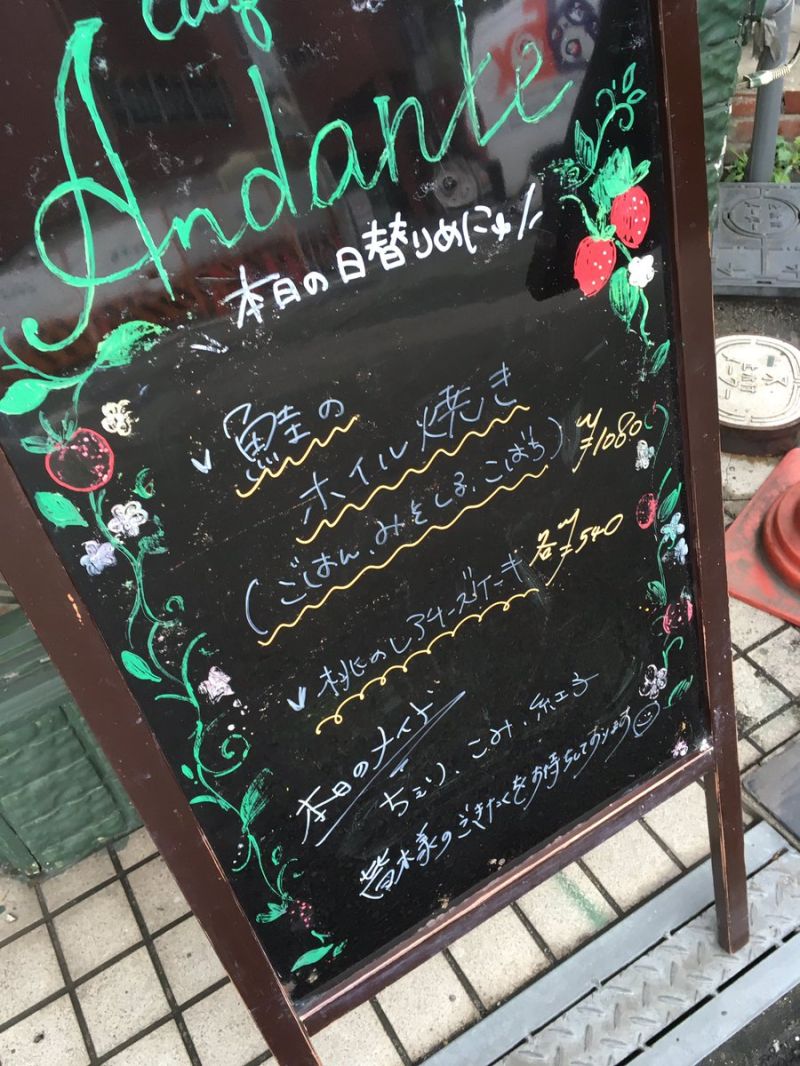 Café
Andante
本日の日替りめにゅー
鮭の
ホイル焼き
(ごはん、みそしる、こばち) ¥1080
桃のレアチーズケーキ 各¥540
本日のナイト
ちえり、こみ、紅子
皆様のごきたくをお待ちしております